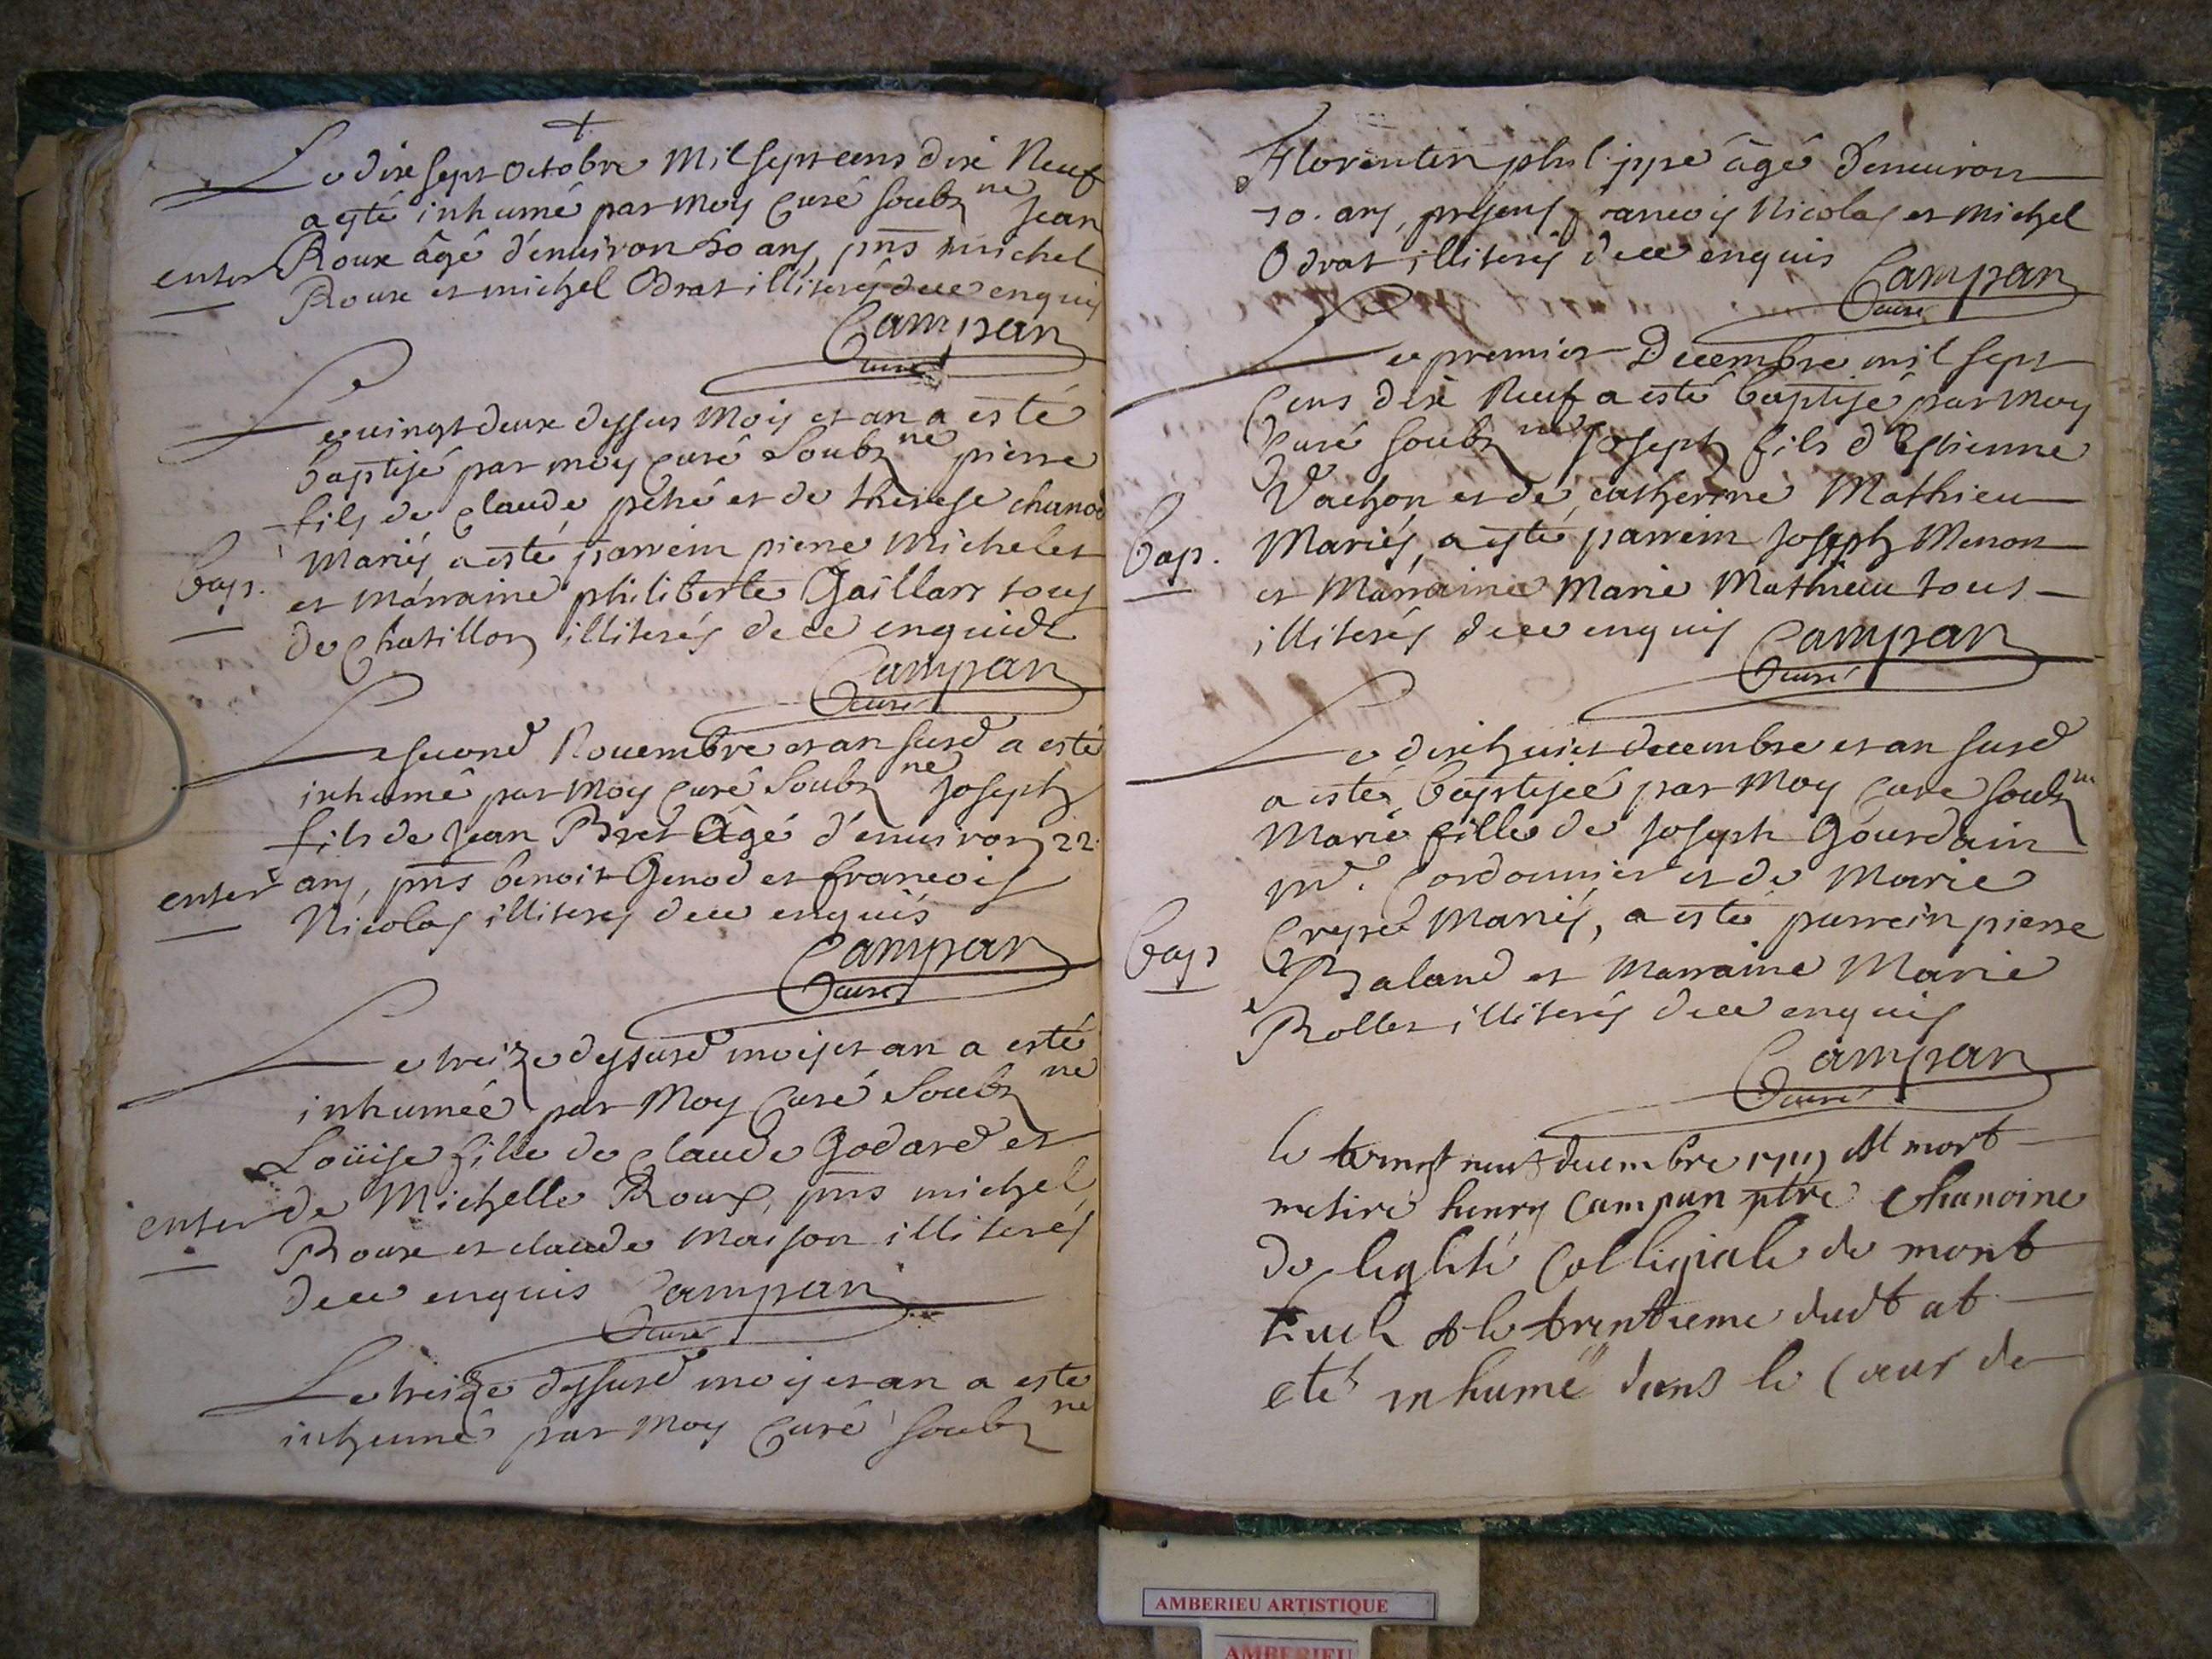 +
Le dixsept octobre Mil sept cens dixe Neuf
a esté inhumé par Moy Curé soubz ne Jean
enter Roux âgé d'environ 50 ans, pns michel
Roux et michel Odrat illiterés de ce enquis
Campan
curé
Le vingt deux dessus Mois et an a esté
baptisé par moy curé Soubz ne pierre
fils de Claude pché et de therese chanod
Mariés a esté parrein pierre Michelet
Bap. et Marraine philiberte Gaillart tous
de Chatillon illiterés de ce enquis
Campan
Curé
Le second Novembre et an susd a esté
inhumé par Moy Curé Soubz ne Joseph
fils de Jean Bret âgé d'environ 22.
enter ans, pns benoit Genod et francois
Nicolas illiterés de ce enquis
Campan
Curé
Le treize dessusd mois et an a esté
inhumée par Moy Curé Soubz ne
Loüise fille de Claude Godard et
enter de Michelle Roux, pns michel
Roux et claude Maison illiterés
de ce enquis Campan
Curé
Le treize dessusd mois et an a esté
inhumé par Moy Curé soubz ne
Florentin philippe âgé d'environ
70. ans, presens francois Nicolas et Michel
Odrat illiterés de ce enquis
Campan
Curé
Le premier Decembre mil sept
Cens dixe Neuf a esté baptisé par Moy
Curé soubz ne Joseph fils d'Estienne
Vachon et de catherine Mathieu
Bap. Mariés, a esté parrein Joseph Menon
et Marraine Marie Mathieu tous
illiterés de ce enquis Campan
Curé
Le dixhuict decembre et an susd
a esté baptisée par Moy Curé soubz ne
Marie fille de Joseph Gourdain
Md. Cordonnier et de Marie
Crepet Mariés, a esté parrein pierre
Bap Baland et Marraine Marie
Rollet illiterés de ce enquis
Campan
Curé
le vingt neuf decembre 1719 est mort
messire henry Campan ptre Chanoine
de leglise Collegiale de mont
luel & le trentieme dudt at
eté inhumé dans le Cœur de
AMBERIEU ARTISTIQUE
AMBERIEU